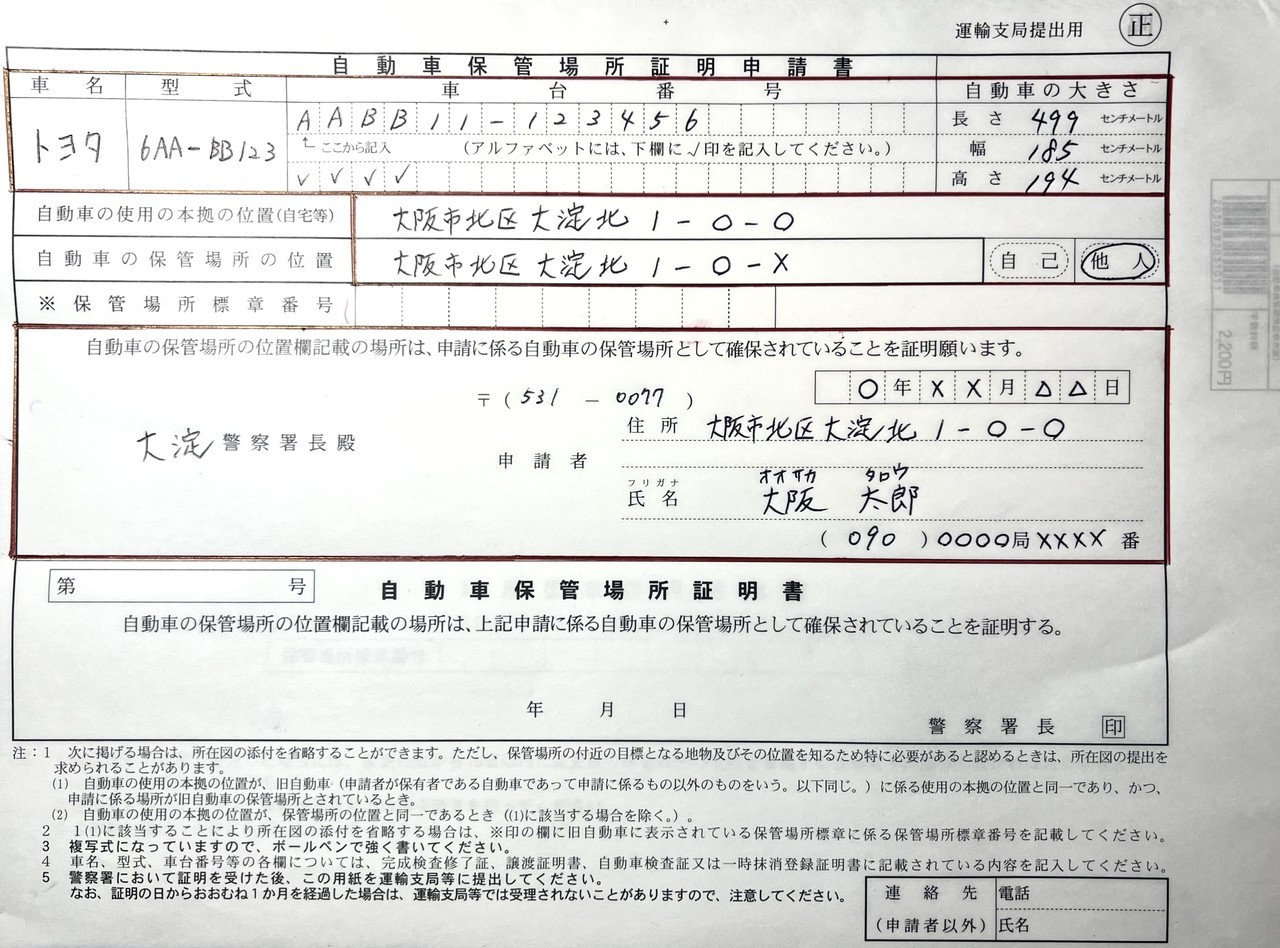 運輸支局提出用 正
自動車保管場所証明申請書
車名 型式 車台番号 自動車の大きさ
トヨタ 6AA-BB123 AABB11-123456 長さ 499 センチメートル
ここから記入 (アルファベットには、下欄に✓印を記入してください。) 幅 185 センチメートル
✓ ✓ ✓ ✓ 高さ 194 センチメートル
自動車の使用の本拠の位置(自宅等) 大阪市北区大淀北1-0-0
自動車の保管場所の位置 大阪市北区大淀北1-0-X 自己 他人
※保管場所標章番号
自動車の保管場所の位置欄記載の場所は、申請に係る自動車の保管場所として確保されていることを証明願います。
○年XX月△△日
〒(531-0077)
大淀警察署長殿 住所 大阪市北区大淀北1-0-0
申請者
フリガナ オオサカ タロウ
氏名 大阪 太郎
(090)0000局XXXX番
第 号 自動車保管場所証明書
自動車の保管場所の位置欄記載の場所は、上記申請に係る自動車の保管場所として確保されていることを証明する。
年 月 日
警察署長 印
注:1 次に掲げる場合は、所在図の添付を省略することができます。ただし、保管場所の付近の目標となる地物及びその位置を知るため特に必要があると認めるときは、所在図の提出を
求められることがあります。
(1) 自動車の使用の本拠の位置が、旧自動車(申請者が保有者である自動車であって申請に係るもの以外のものをいう。以下同じ。)に係る使用の本拠の位置と同一であり、かつ、
申請に係る場所が旧自動車の保管場所とされているとき。
(2) 自動車の使用の本拠の位置が、保管場所の位置と同一であるとき((1)に該当する場合を除く。)。
2 1(1)に該当することにより所在図の添付を省略する場合は、※印の欄に旧自動車に表示されている保管場所標章に係る保管場所標章番号を記載してください。
3 複写式になっていますので、ボールペンで強く書いてください。
4 車名、型式、車台番号等の各欄については、完成検査修了証、譲渡証明書、自動車検査証又は一時抹消登録証明書に記載されている内容を記入してください。
5 警察署において証明を受けた後、この用紙を運輸支局等に提出してください。
なお、証明の日からおおむね1か月を経過した場合は、運輸支局等では受理されないことがありますので、注意してください。
連絡先 電話
(申請者以外) 氏名
2,200円